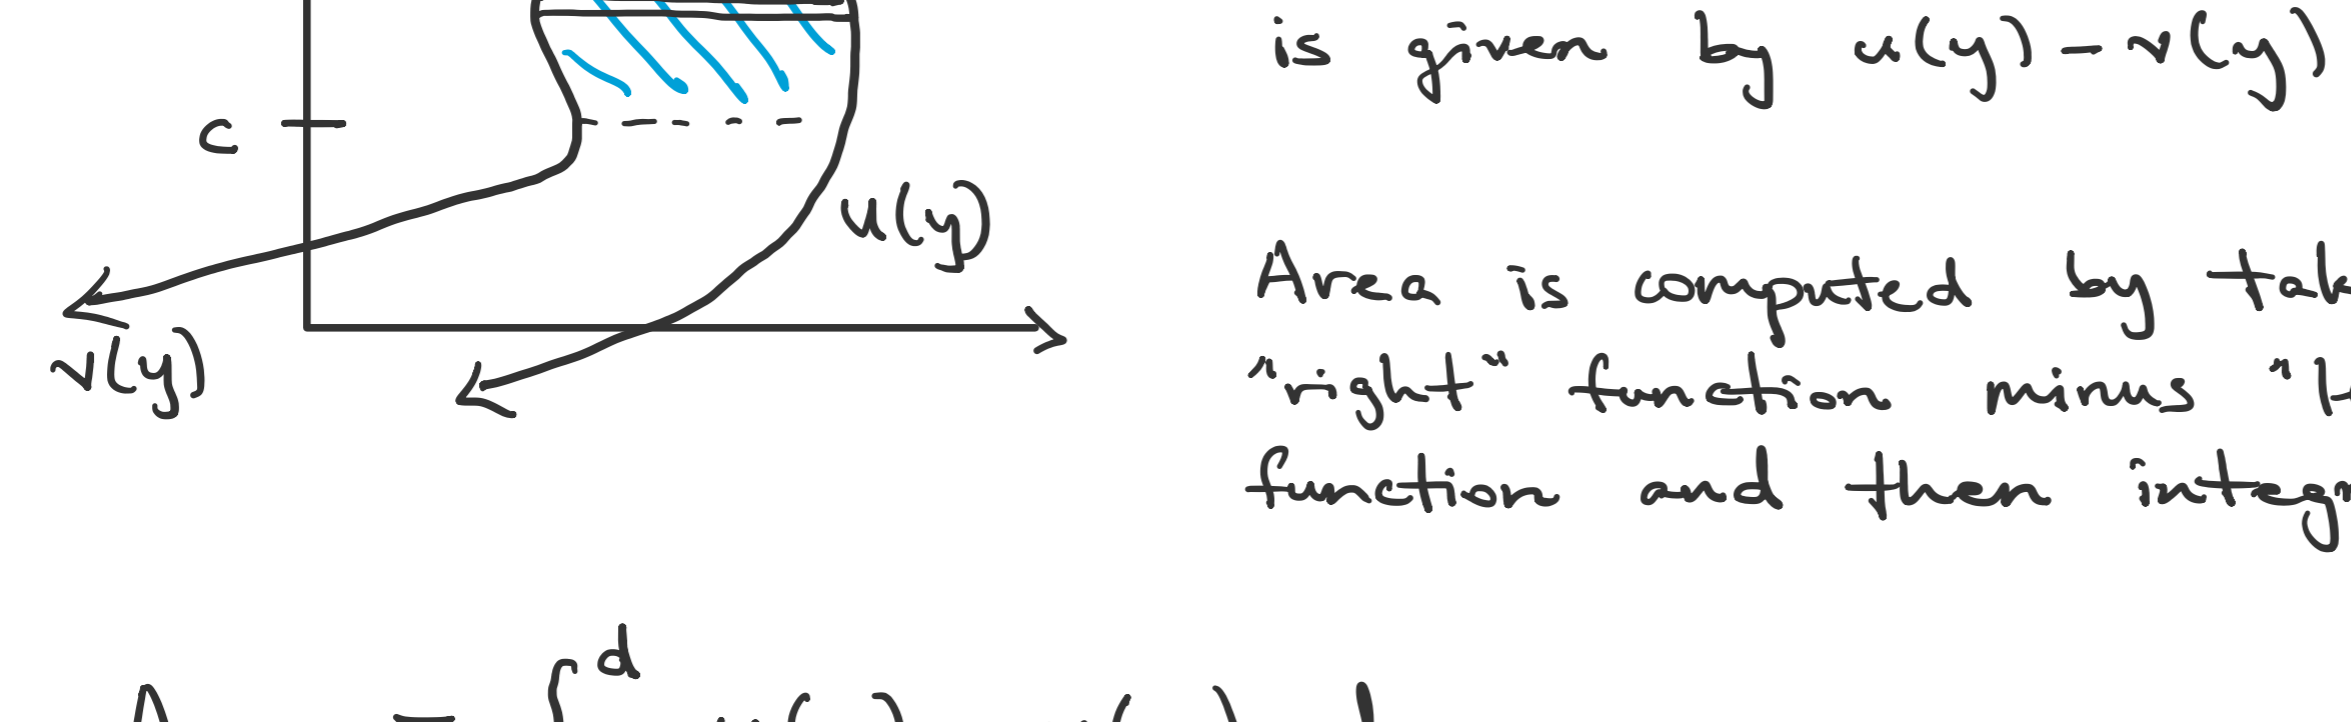 is given by u(y) - v(y)
c
u(y)
v(y)
Area is computed by tak
"right" function minus "l
function and then integr
d